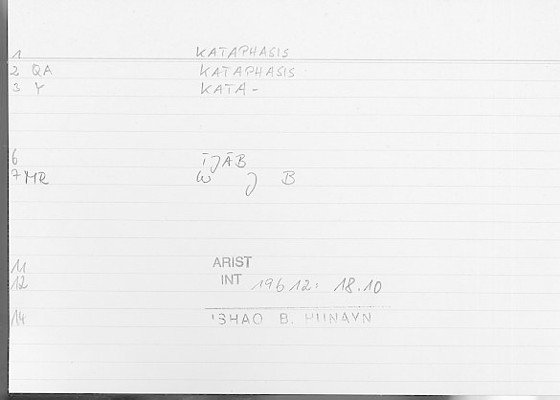 1 KATAPHASIS
2 QA KATAPHASIS
3 Y KATA-
6 ĪJĀB
7 MR W J B
11 ARIST
12 INT 196 12: 18.10
14 ISHAQ B. HUNAYN